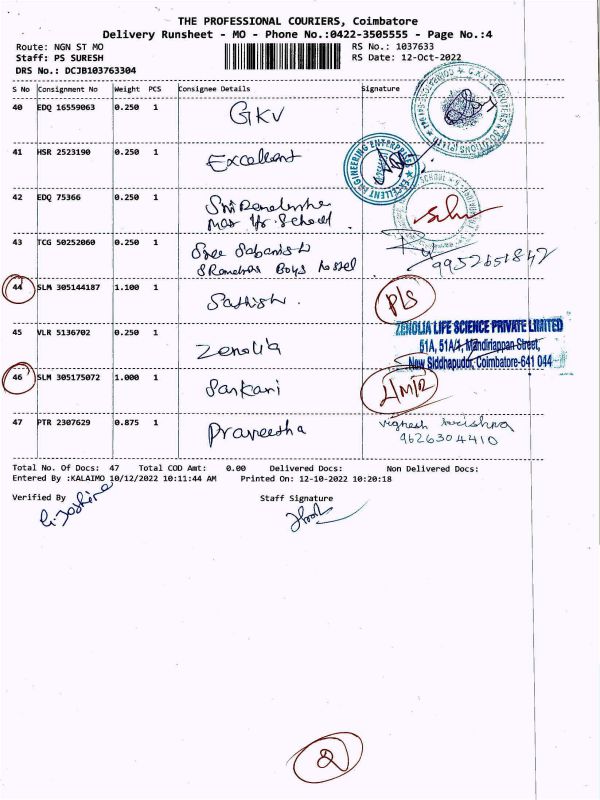 THE PROFESSIONAL COURIERS, Coimbatore
Delivery Runsheet - MO - Phone No.:0422-3505555 - Page No.:4
Route: NGN ST MO RS No.: 1037633
Staff: PS SURESH RS Date: 12-Oct-2022
DRS No.: DCJB103763304
S No Consignment No Weight PCS Consignee Details Signature
40 EDQ 16559063 0.250 1 GKV
41 HSR 2523190 0.250 1 Excellent
EXCELLENT ENGINEERING ENTERPRISES
42 EDQ 75366 0.250 1 Sri Ramakrishna
Mat Hr. School
43 TCG 50252060 0.250 1 Sree Sabarish
S Ramchas Boys hostel
9952651842
44 SLM 305144187 1.100 1 Sathish. P/S
45 VLR 5136702 0.250 1 Zenolia
ZENOLIA LIFE SCIENCE PRIVATE LIMITED
51A, 51A/1, Mandiriappan Street,
New Siddhapudur, Coimbatore-641 044
46 SLM 305175072 1.000 1 Sankari
47 PTR 2307629 0.875 1 Praveetha Vighesh krishna
9626304410
Total No. Of Docs: 47 Total COD Amt: 0.00 Delivered Docs: Non Delivered Docs:
Entered By :KALAIMO 10/12/2022 10:11:44 AM Printed On: 12-10-2022 10:20:18
Verified By Staff Signature
2